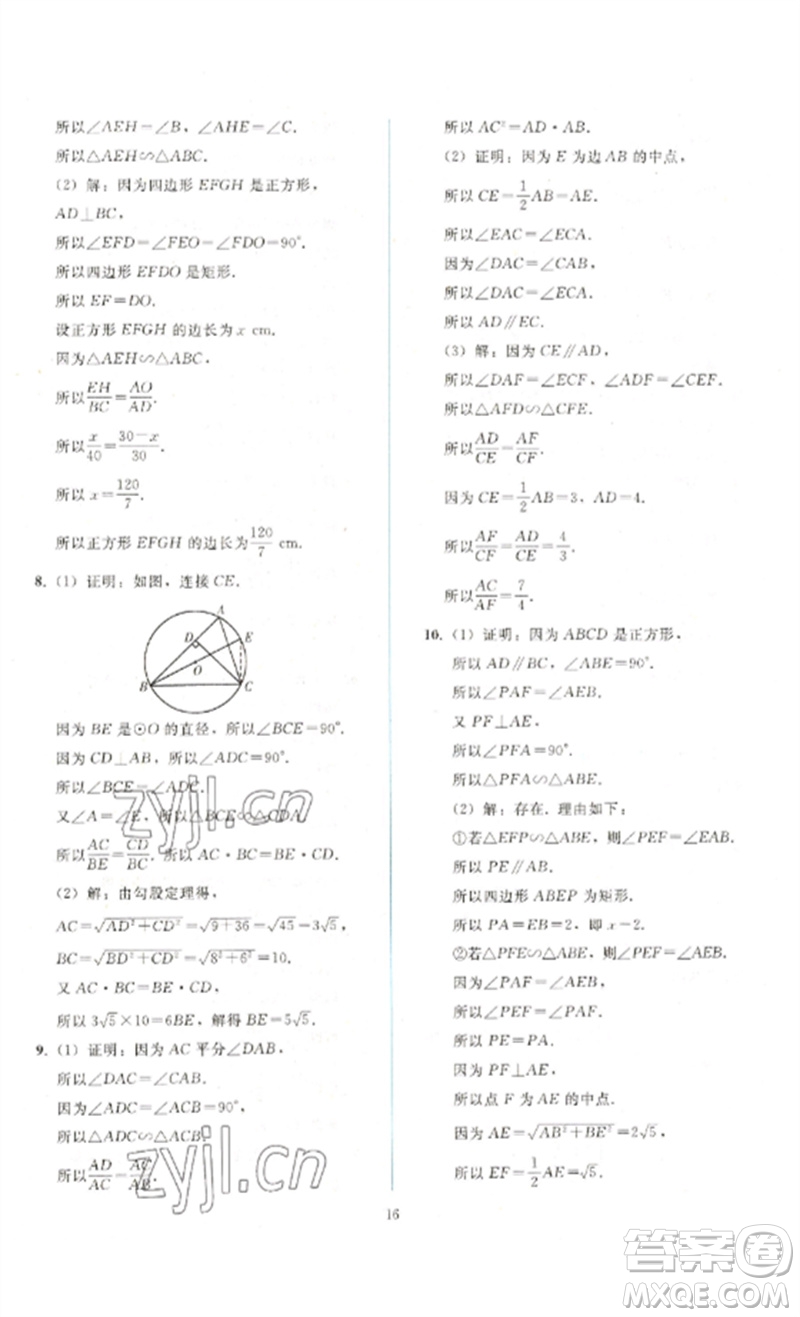 所以∠AEH=∠B，∠AHE=∠C.
所以△AEH∽△ABC.
(2) 解：因为四边形 EFGH 是正方形，
AD⊥BC，
所以∠EFD=∠FEO=∠FDO=90°.
所以四边形 EFDO 是矩形.
所以 EF=DO.
设正方形 EFGH 的边长为 x cm.
因为△AEH∽△ABC，
所以EH/BC=AO/AD.
所以x/40=(30-x)/30.
所以 x=120/7.
所以正方形 EFGH 的边长为120/7 cm.
8. (1) 证明：如图，连接 CE.
A
D
E
O
B
C
因为 BE 是⊙O 的直径，所以∠BCE=90°.
因为 CD⊥AB，所以∠ADC=90°.
所以∠BCE=∠ADC.
又∠A=∠E，所以△BCE∽△CDA.
所以AC/BE=CD/BC. 所以 AC·BC=BE·CD.
(2) 解：由勾股定理得，
AC=√(AD²+CD²)=√(9+36)=√45=3√5，
BC=√(BD²+CD²)=√(8²+6²)=10.
又 AC·BC=BE·CD，
所以 3√5×10=6BE，解得 BE=5√5.
9. (1) 证明：因为 AC 平分∠DAB，
所以∠DAC=∠CAB.
因为∠ADC=∠ACB=90°，
所以△ADC∽△ACB.
所以AD/AC=AC/AB.
所以 AC²=AD·AB.
(2) 证明：因为 E 为边 AB 的中点，
所以 CE=1/2AB=AE.
所以∠EAC=∠ECA.
因为∠DAC=∠CAB，
所以∠DAC=∠ECA.
所以 AD∥EC.
(3) 解：因为 CE∥AD，
所以∠DAF=∠ECF，∠ADF=∠CEF.
所以△AFD∽△CFE.
所以AD/CE=AF/CF.
因为 CE=1/2AB=3，AD=4.
所以AF/CF=AD/CE=4/3.
所以AC/AF=7/4.
10. (1) 证明：因为 ABCD 是正方形，
所以 AD∥BC，∠ABE=90°.
所以∠PAF=∠AEB.
又 PF⊥AE，
所以∠PFA=90°.
所以△PFA∽△ABE.
(2) 解：存在. 理由如下：
①若△EFP∽△ABE，则∠PEF=∠EAB.
所以 PE∥AB.
所以四边形 ABEP 为矩形.
所以 PA=EB=2，即 x=2.
②若△PFE∽△ABE，则∠PEF=∠AEB.
因为∠PAF=∠AEB，
所以∠PEF=∠PAF.
所以 PE=PA.
因为 PF⊥AE，
所以点 F 为 AE 的中点.
因为 AE=√(AB²+BE²)=2√5，
所以 EF=1/2AE=√5.
16
zyjl.cn
zyjl.cn
答案卷
MXQE.COM